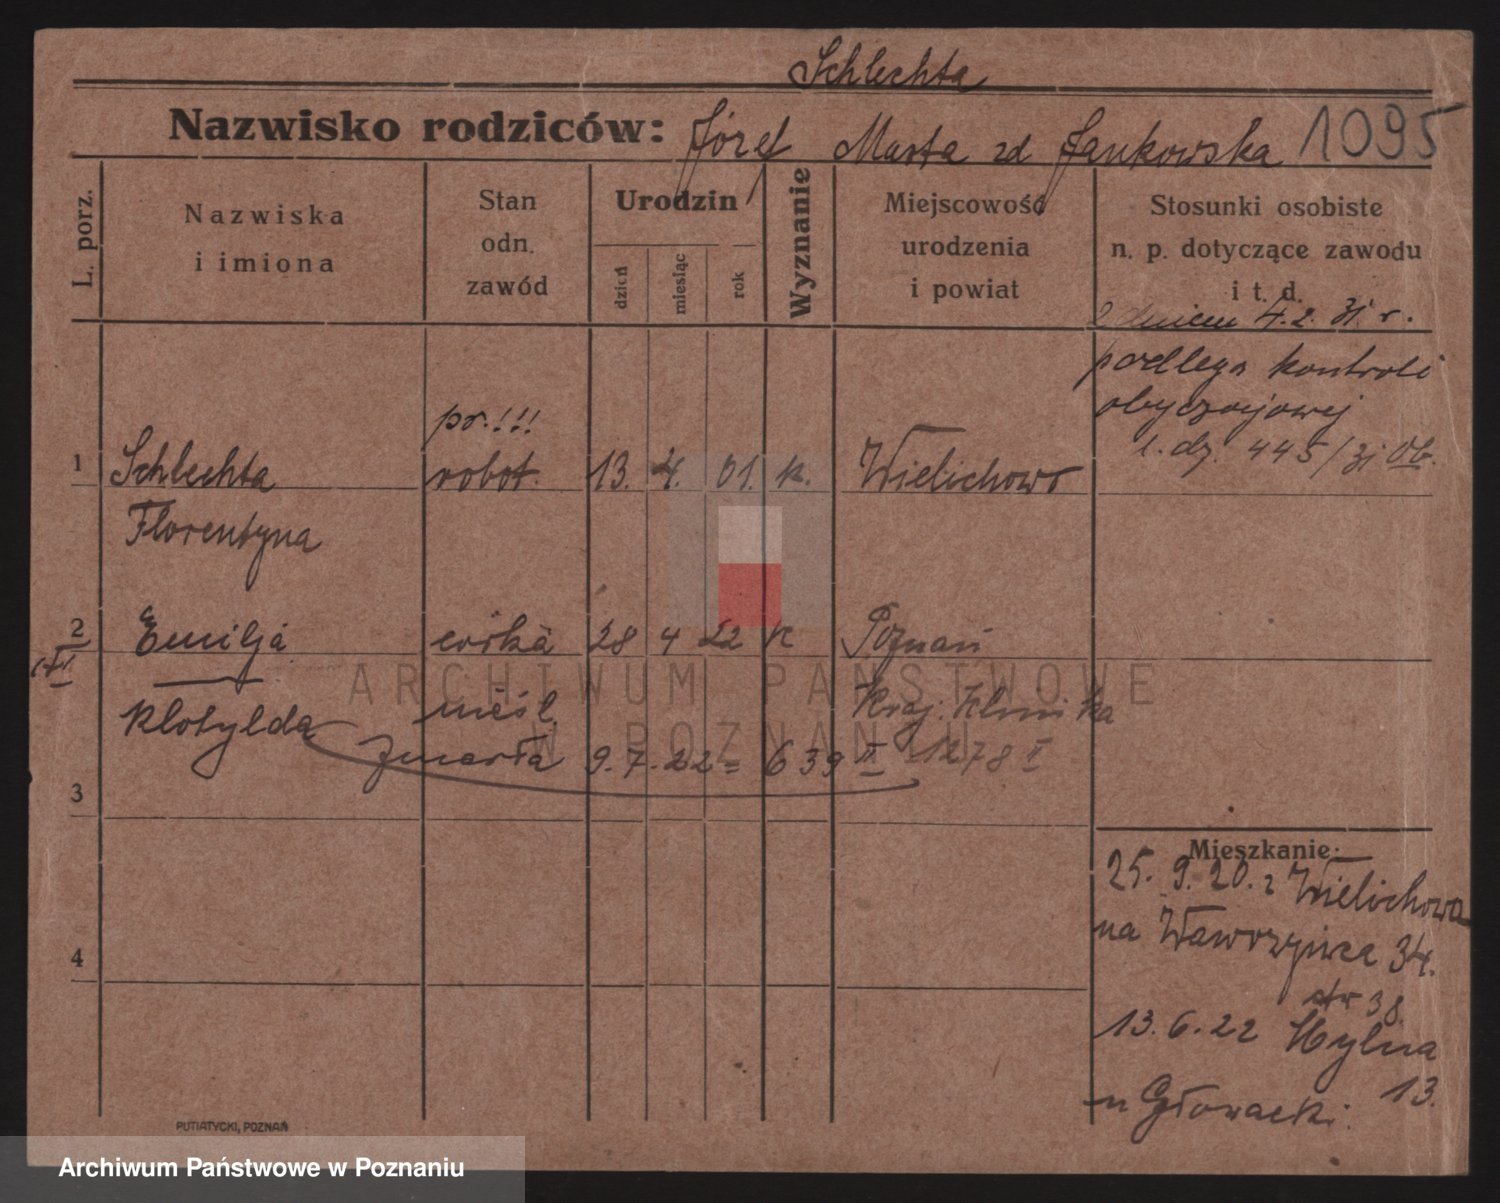 Schlechta
Nazwisko rodziców: Józef Marta zd Jankowska 1095
L. porz.
Nazwiska
i imiona
Stan
odn.
zawód
Urodzin
dzień
miesiąc
rok
Wyznanie
Miejscowość
urodzenia
i powiat
Stosunki osobiste
n. p. dotyczące zawodu
i t. d.
z dniem 4. 2. 31. r.
podlega kontroli
obyczajowej
l. dz. 445/31 Ob.
pr.!!!
1 Schlechta robot. 13. 4. 01. k. Wielichowo
Florentyna
2 Emilja córka 28 4 22 k Poznań
Klotylda nieśl. Kraj. Klinika
zmarła 9. 7. 22 = 639 II 1278 I
3
4
Mieszkanie:
25. 9. 20. z Wielichowa
na Wawrzyńca 34.
str 38.
13. 6. 22 Hylna
13.
u Głowacki.
PUTIATYCKI, POZNAŃ
ARCHIWUM PAŃSTWOWE
W POZNANIU
Archiwum Państwowe w Poznaniu